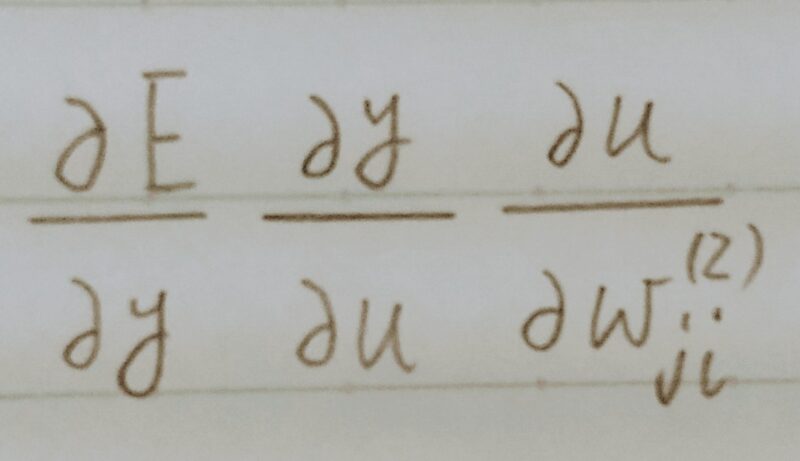 \frac{\partial E}{\partial y} \frac{\partial y}{\partial u} \frac{\partial u}{\partial w_{ji}^{(2)}}